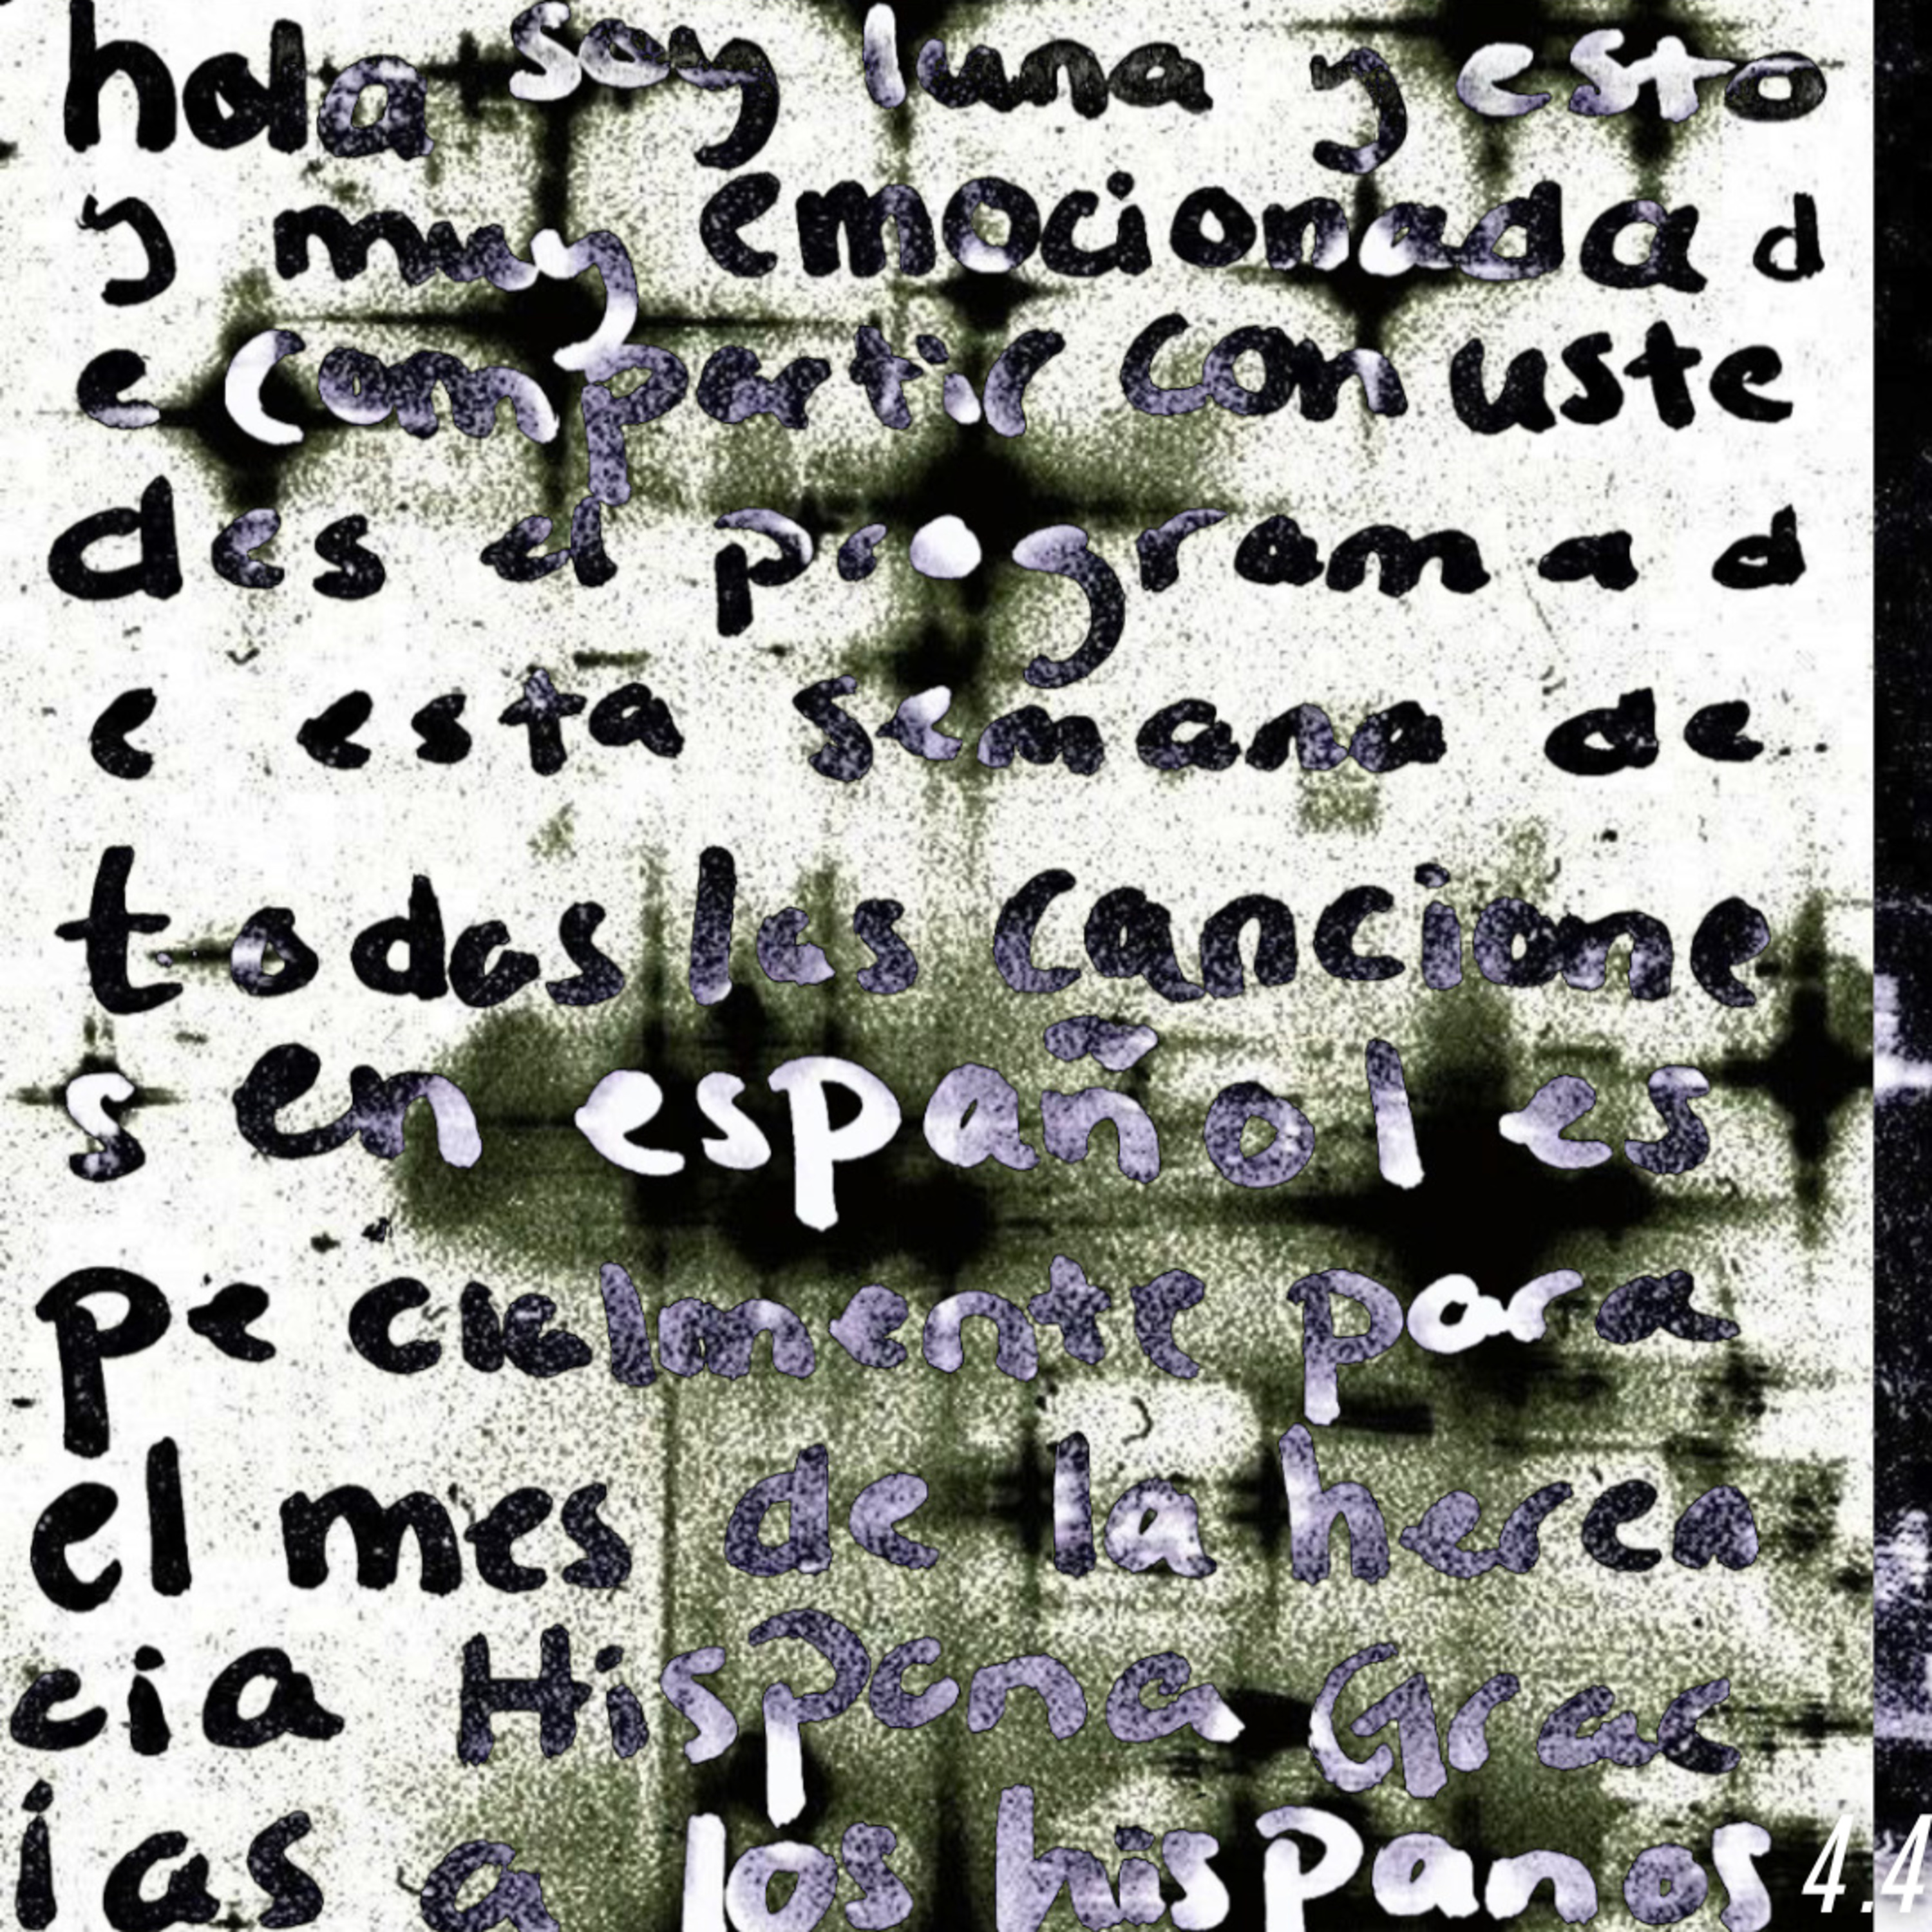 hola soy luna y esto
y muy emocionada d
e compartir con uste
des el programa d
e esta semana de
todas las cancione
s en español es
pecialmente para
el mes de la heren
cia Hispana Grac
ias a los hispanos
4.4